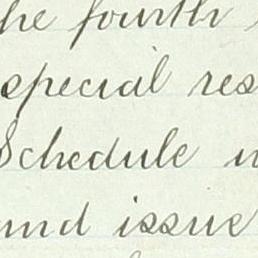 the fourth
special res
Schedule
and issue